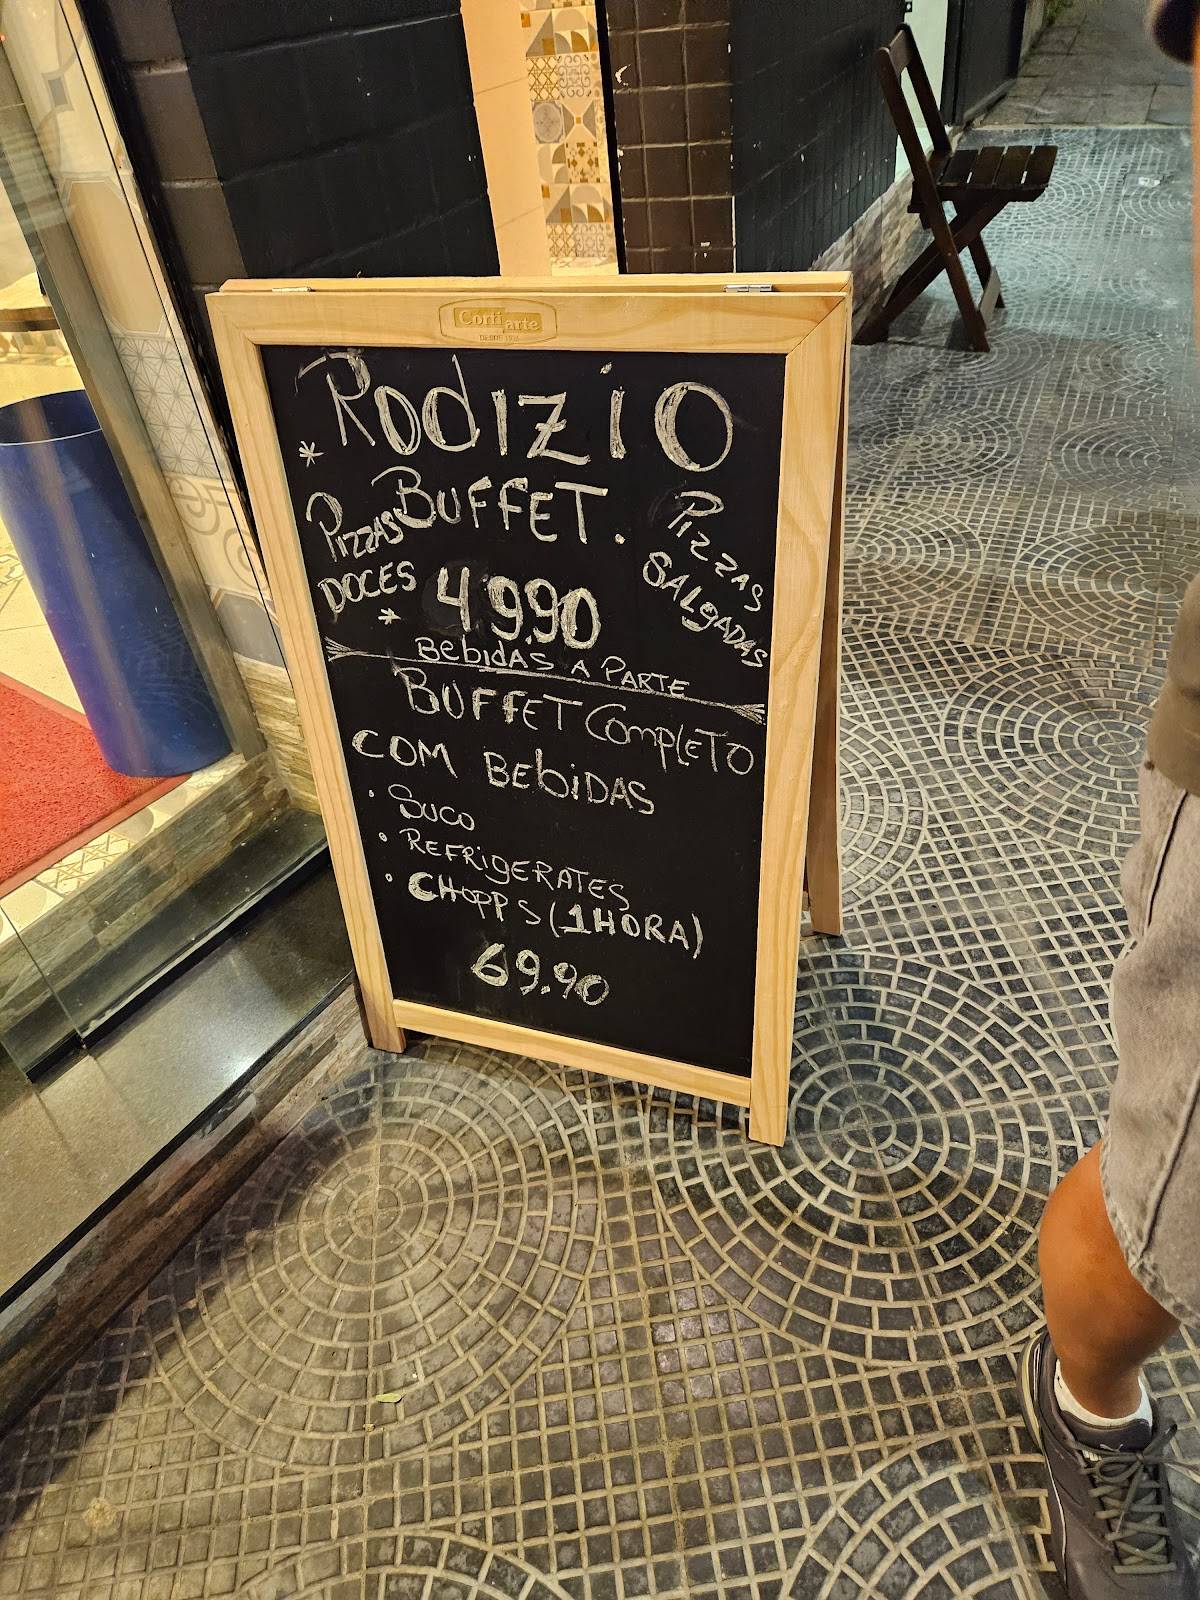 Corti arte
DESDE 1976
RODIZIO
* BUFFET.
PIZZAS
DOCES *
PIZZAS
SALGADAS
49.90
BEBIDAS A PARTE
BUFFET COMPLETO
COM BEBIDAS
• SUCO
• REFRIGERATES
• CHOPPS (1HORA)
69.90